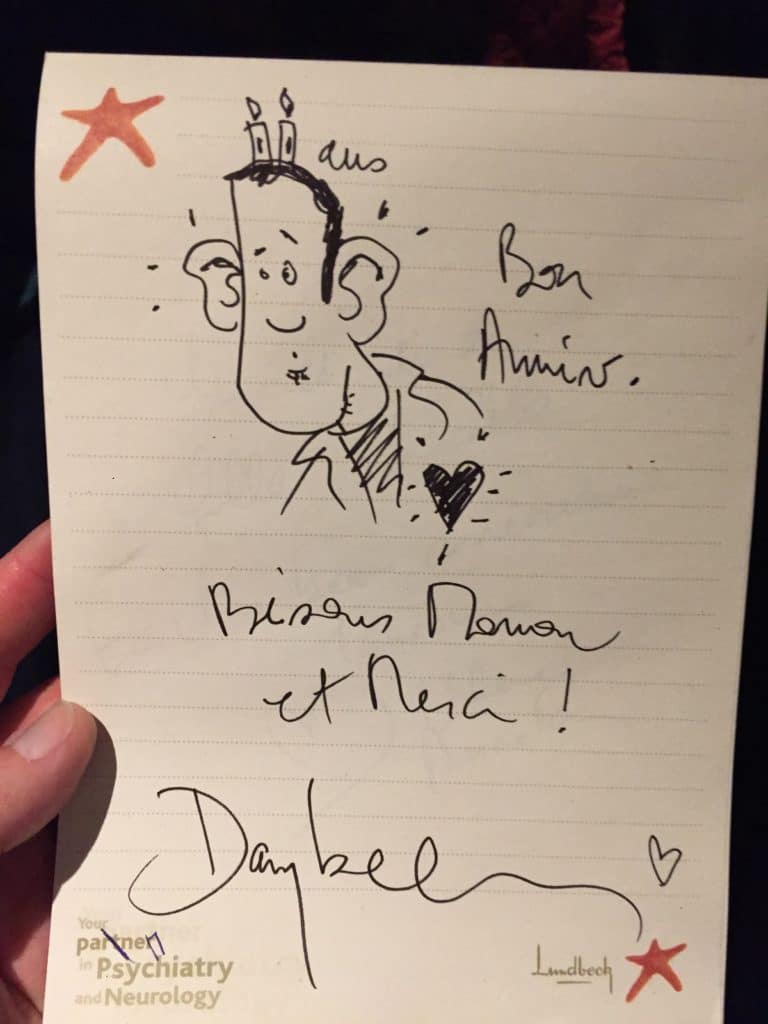 ans
Bon
Anniv.
Bisous Manon
et Merci !
Your
partner
in Psychiatry
and Neurology
Lundbeck